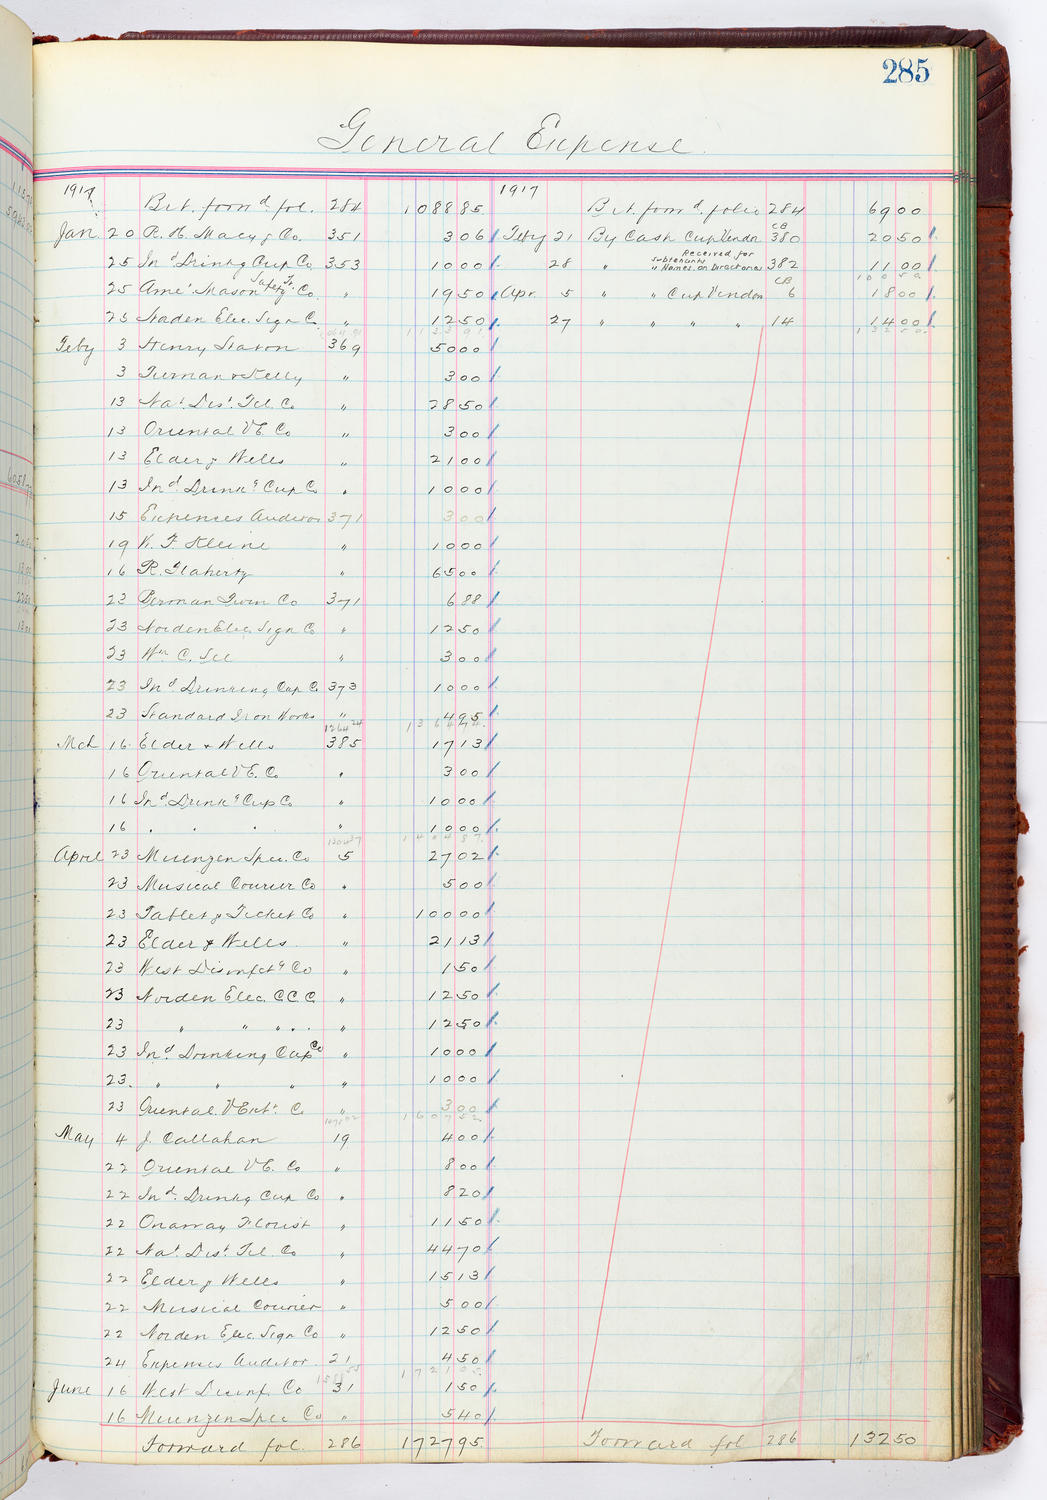 285
General Expense
1917
Brt. forwd. fol. 284 1088 85
Jan 20 R. H. Macy & Co. 351 3 06
25 Ind Drinkg Cup Co 353 10 00
25 Ame. Mason Safety Tr. Co. " 19 50
25 Norden Elec. Sign C. " 12 50
1064 91 1133 91
Feby 3 Henry Saxon 369 50 00
3 Turman & Kelly " 3 00
13 Nat. Dist. Tel. Co " 28 50
13 Oriental V E. Co " 3 00
13 Elder & Wells " 21 00
13 Ind. Drinkg Cup Co " 10 00
15 Expenses Auditor 371 3 00
19 W. F. Kleine " 10 00
16 R. Flaherty " 65 00
23 Berman Twin Co 371 6 88
23 Norden Elec. Sign Co " 12 50
23 Wm C. " 3 00
23 Ind Drinking Cup C. 373 10 00
23 Standard Iron Works " 4 95
1264 24 1364 74
Mch 16 Elder & Wells 385 17 13
16 Oriental V E. Co. " 3 00
16 Ind. Drinkg Cup Co " 10 00
16 " " " " 10 00
1304 37 1404 87
April 23 Meenzen Spec. Co 5 27 02
23 Musical Courier Co " 5 00
23 Tablet & Ticket Co " 100 00
23 Elder & Wells " 21 13
23 West Disinfctg Co " 1 50
23 Norden Elec. C. C C. " 12 50
23 " " " " " 12 50
23 Ind. Drinking Cup Co " 10 00
23 " " " " 10 00
23 Oriental V Ext. C. " 3 00
1471 02 1607 52
May 4 J. Callahan 19 4 00
22 Oriental V E. Co " 8 00
22 Ind. Drinkg Cup Co " 8 20
22 Onaway Florist " 11 50
22 Nat. Dist. Tel. Co " 44 70
22 Elder & Wells " 15 13
22 Musical Courier " 5 00
22 Norden Elec. Sign Co " 12 50
24 Expenses Auditor 21 4 50
1721 05
June 16 West Disinf. Co 31 1 50
16 Meenzen Spec Co " 5 40
Forward fol. 286 1727 95
1917
Brt. forwd. folio 284 69 00
Feby 21 By Cash Cup Vendor CB 380 20 50
28 " Received for subtenants " Names on Directories 382 11 00
100 50
Apr. 5 " " Cup Vendor CB 6 18 00
27 " " " " 14 14 00
132 50
Forward fol 286 132 50